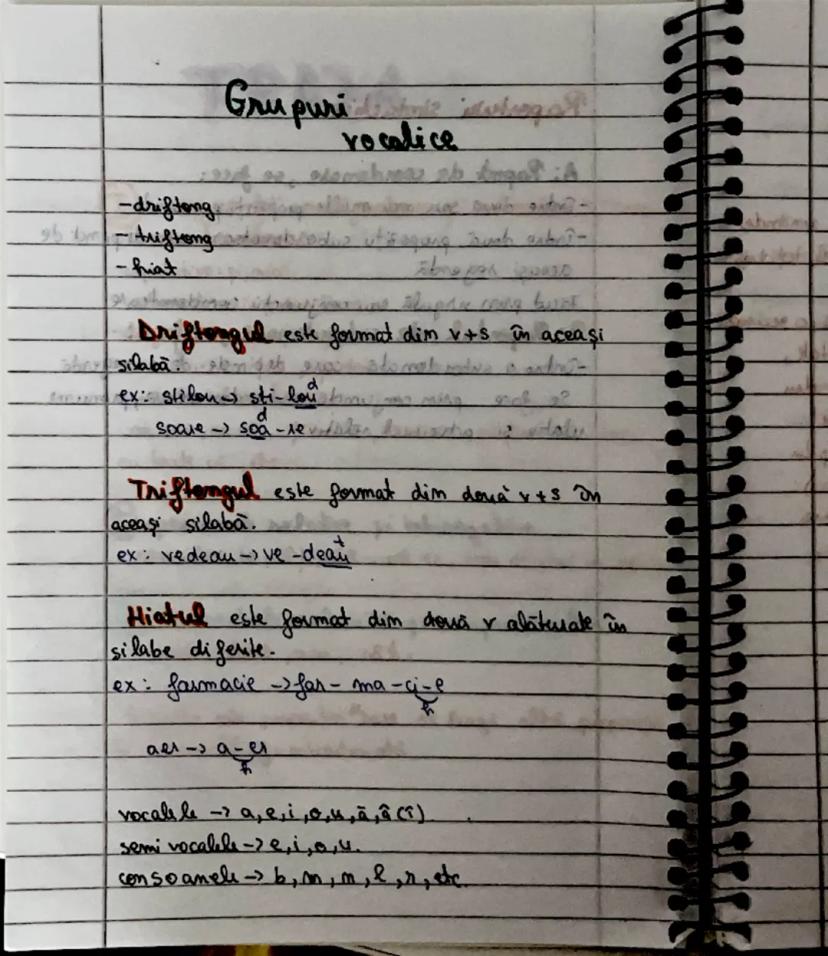 Grupuri
vocalice
-driftong
-triftong
-hiat
Driftongul este format din v+s în aceași
silabă.
ex: stilou → sti-lou d
soare → soa-re d
Triftongul este format din două v+s în
aceași silabă.
ex: vedeau → ve-deau t
Hiatul este format din două v alăturate în
silabe diferite.
ex: farmacie → far-ma-ci-e
h
aer → a-er
h
vocalele → a,e,i,o,u,ă,â(î)
semi vocalele → e,i,o,u.
consoanele → b,m,n,l,r,etc.